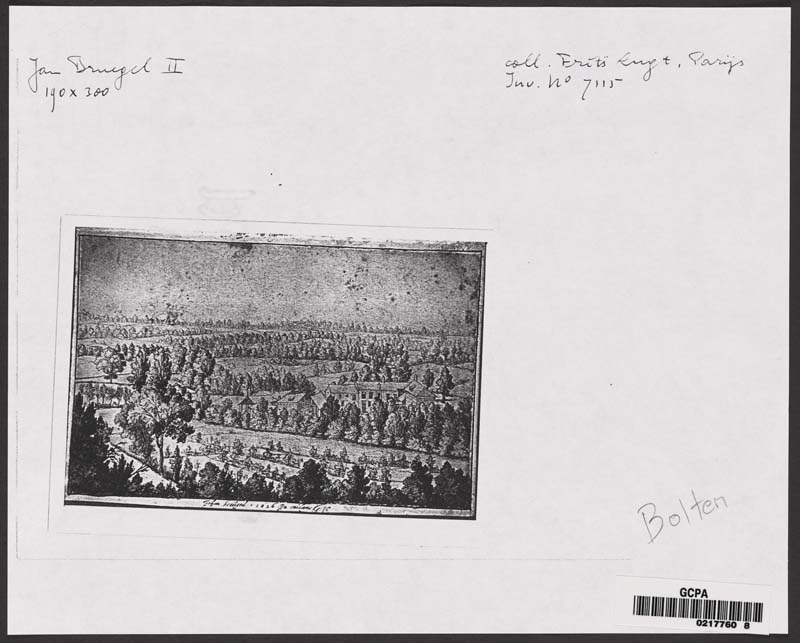 Jan Bruegel II
190 x 300
coll. Frits Lugt, Parijs
Inv. No 7115
1626
Bolten
GCPA
0217760 8